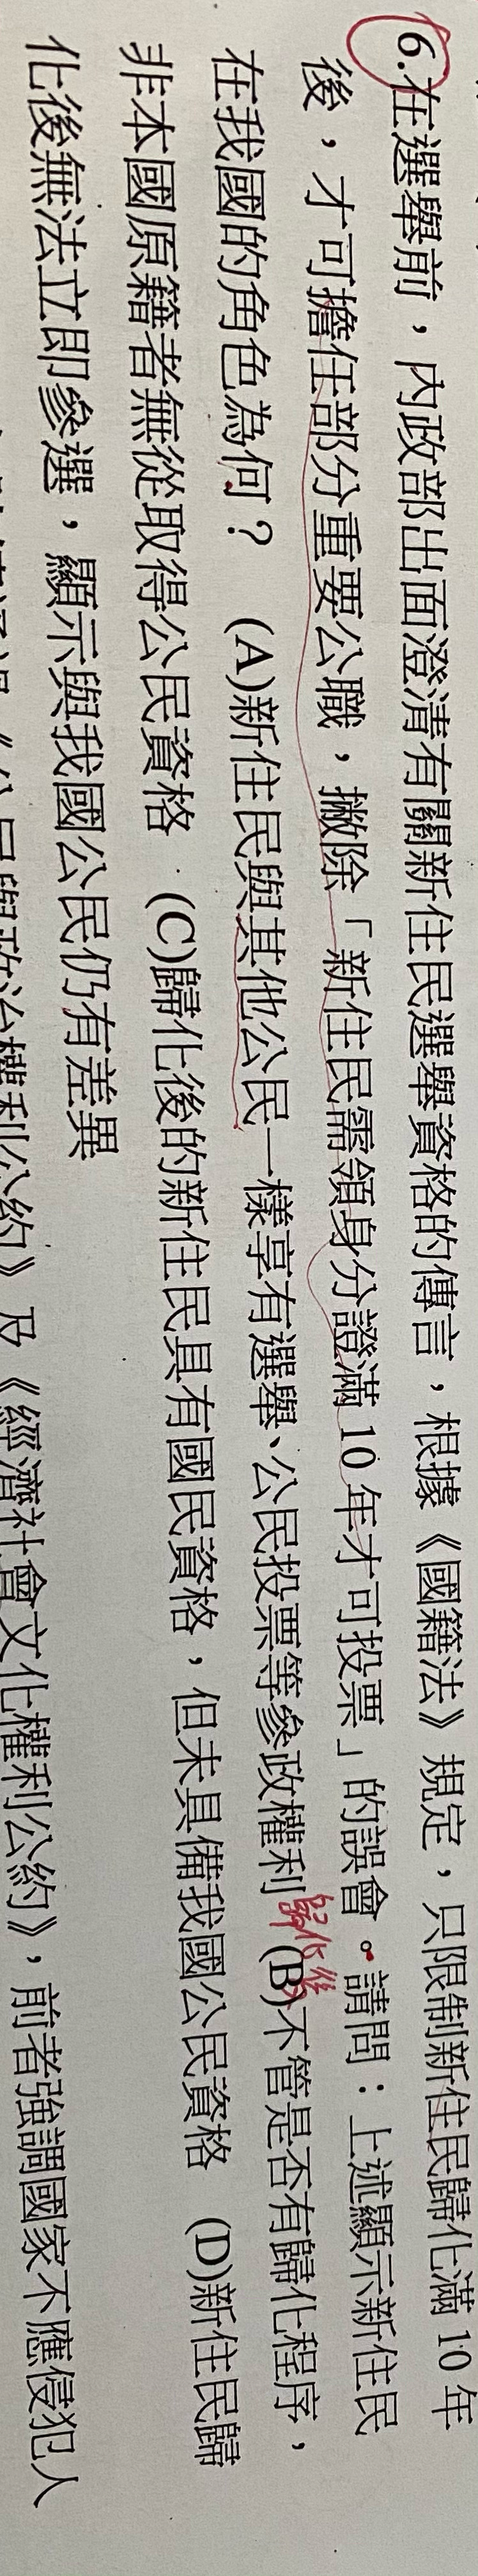 6.在選舉前，內政部出面澄清有關新住民選舉資格的傳言，根據《國籍法》規定，只限制新住民歸化滿 10 年
後，才可擔任部分重要公職，撇除「新住民需領身分證滿 10 年才可投票」的誤會。請問：上述顯示新住民
在我國的角色為何？ (A)新住民與其他公民一樣享有選舉、公民投票等參政權利 歸化後 (B)不管是否有歸化程序，
非本國原籍者無從取得公民資格 (C)歸化後的新住民具有國民資格，但未具備我國公民資格 (D)新住民歸
化後無法立即參選，顯示與我國公民仍有差異
《公民與政治權利公約》及《經濟社會文化權利公約》，前者強調國家不應侵犯人